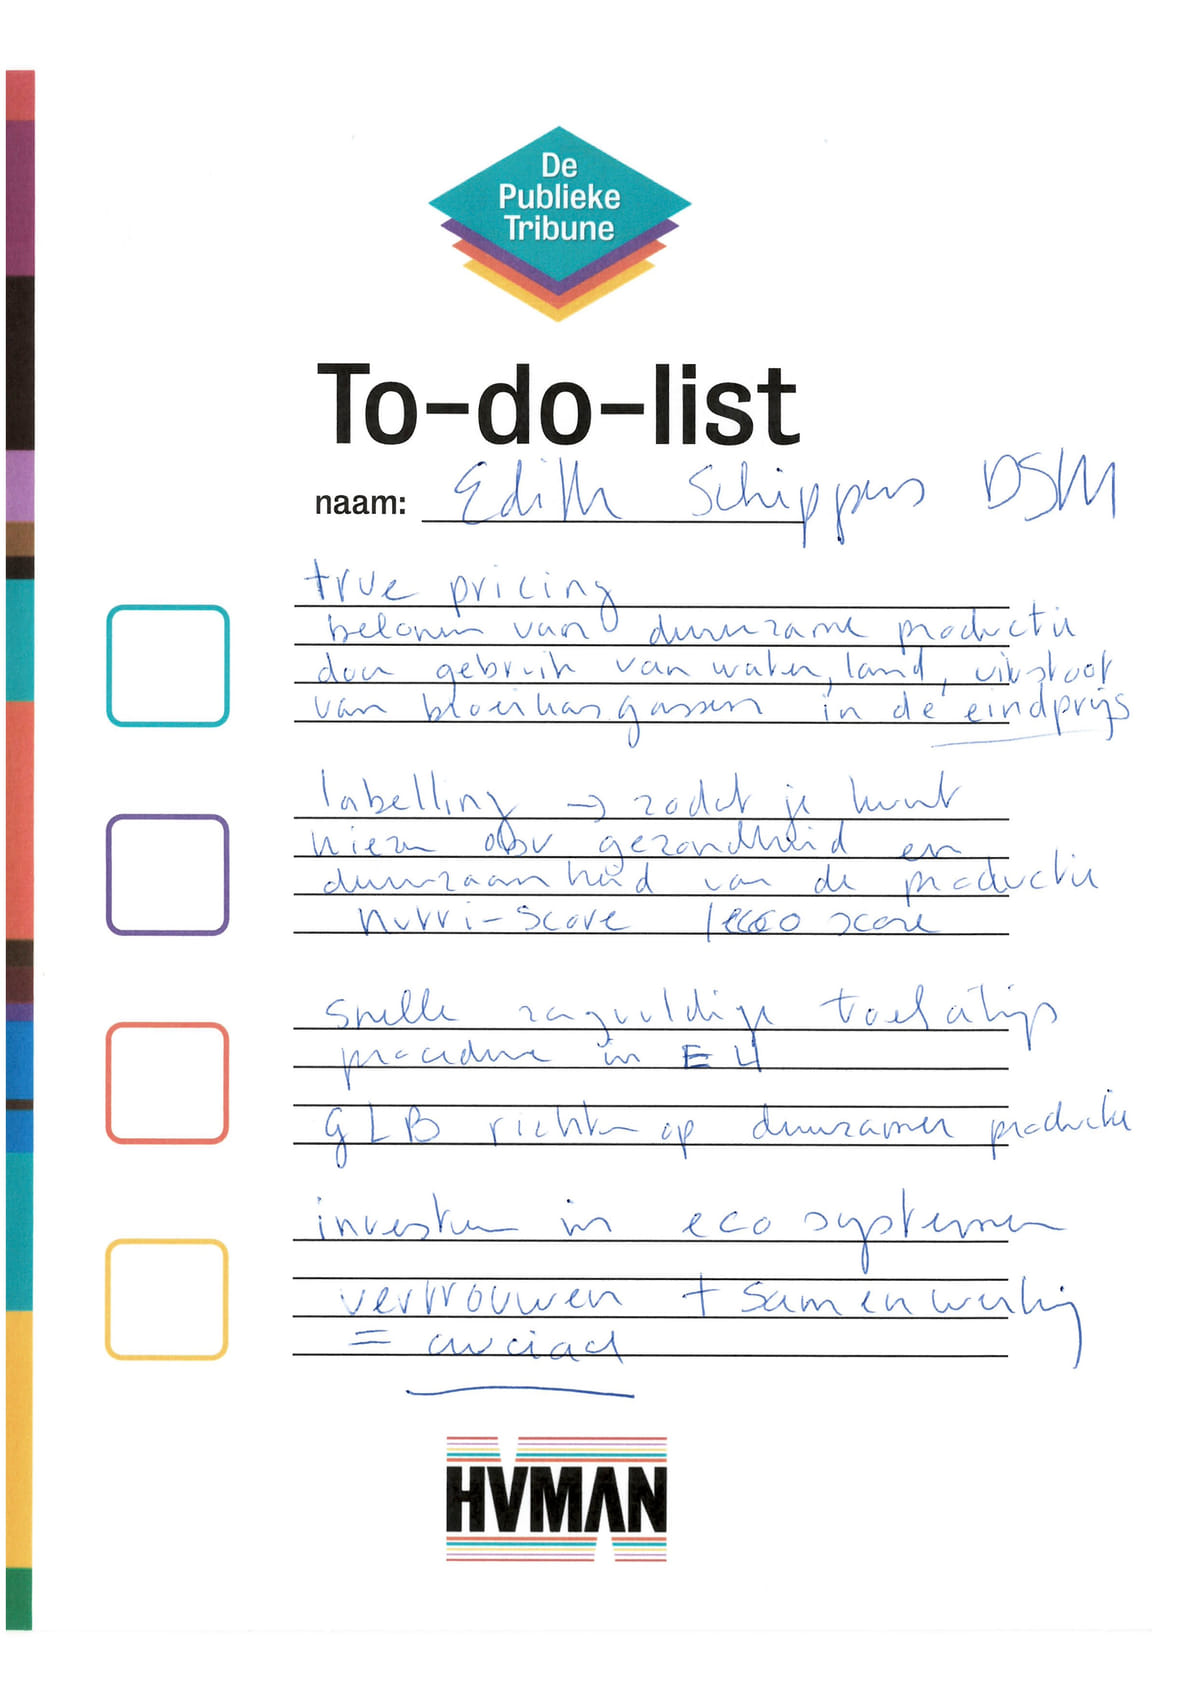 De
Publieke
Tribune
To-do-list
naam: Edith Schippers DSM
true pricing
belonen van duurzame productie
door gebruik van water, land, uitstoot
van broeikasgassen in de eindprijs
labelling → zodat je kunt
kiezen obv gezondheid en
duurzaamheid van de productie
Nutri-score / eco score
snelle zorgvuldige toelatings
procedure in EU
GLB richten op duurzamer productie
investeren in eco systemen
vertrouwen + samenwerking
= cruciaal
HVMAN